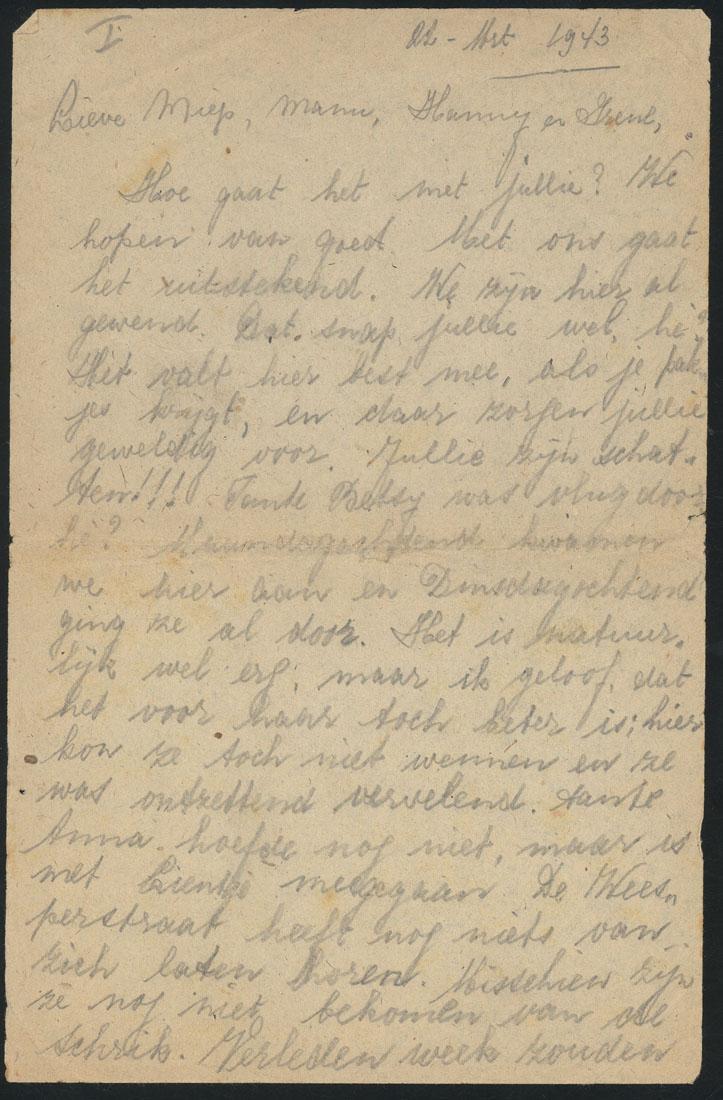 I
22 - Mrt 1943
Lieve Miep, Manu, Hanny en Irene,
Hoe gaat het met jullie? We
hopen van goed. Met ons gaat
het uitstekend. We zijn hier al
gewend. Dat snap jullie wel, hè?
Het valt hier best mee, als je pak-
jes krijgt, en daar zorgen jullie
geweldig voor. Jullie zijn schat-
ten!!! Tante Betsy was vlug door,
hè? Maandagochtend kwamen
we hier aan en Dinsdagochtend
ging ze al door. Het is natuur-
lijk wel erg, maar ik geloof, dat
het voor haar toch beter is; hier
kon ze toch niet wennen en ze
was ontzettend vervelend. Tante
Anna hoefde nog niet, maar is
met Lientje meegegaan De Wees-
perstraat heeft nog niets van
zich laten horen. Misschien zijn
ze nog niet bekomen van de
schrik. Verleden week zouden